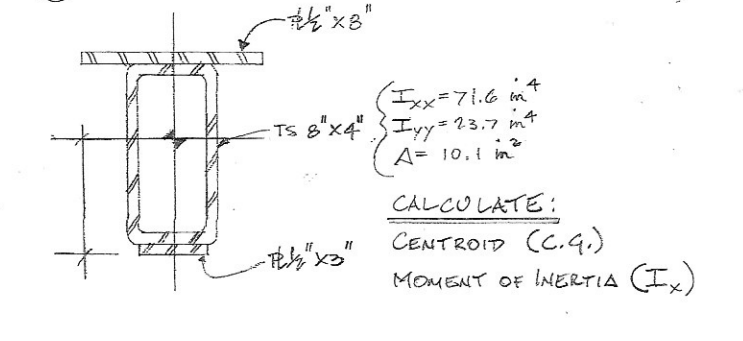 ℄ ½" X 8"
TS 8" X 4"
Ixx = 71.6 in⁴
Iyy = 23.7 in⁴
A = 10.1 in²
CALCULATE:
CENTROID (C.G.)
℄ ½" X 3"
MOMENT OF INERTIA (Ix)